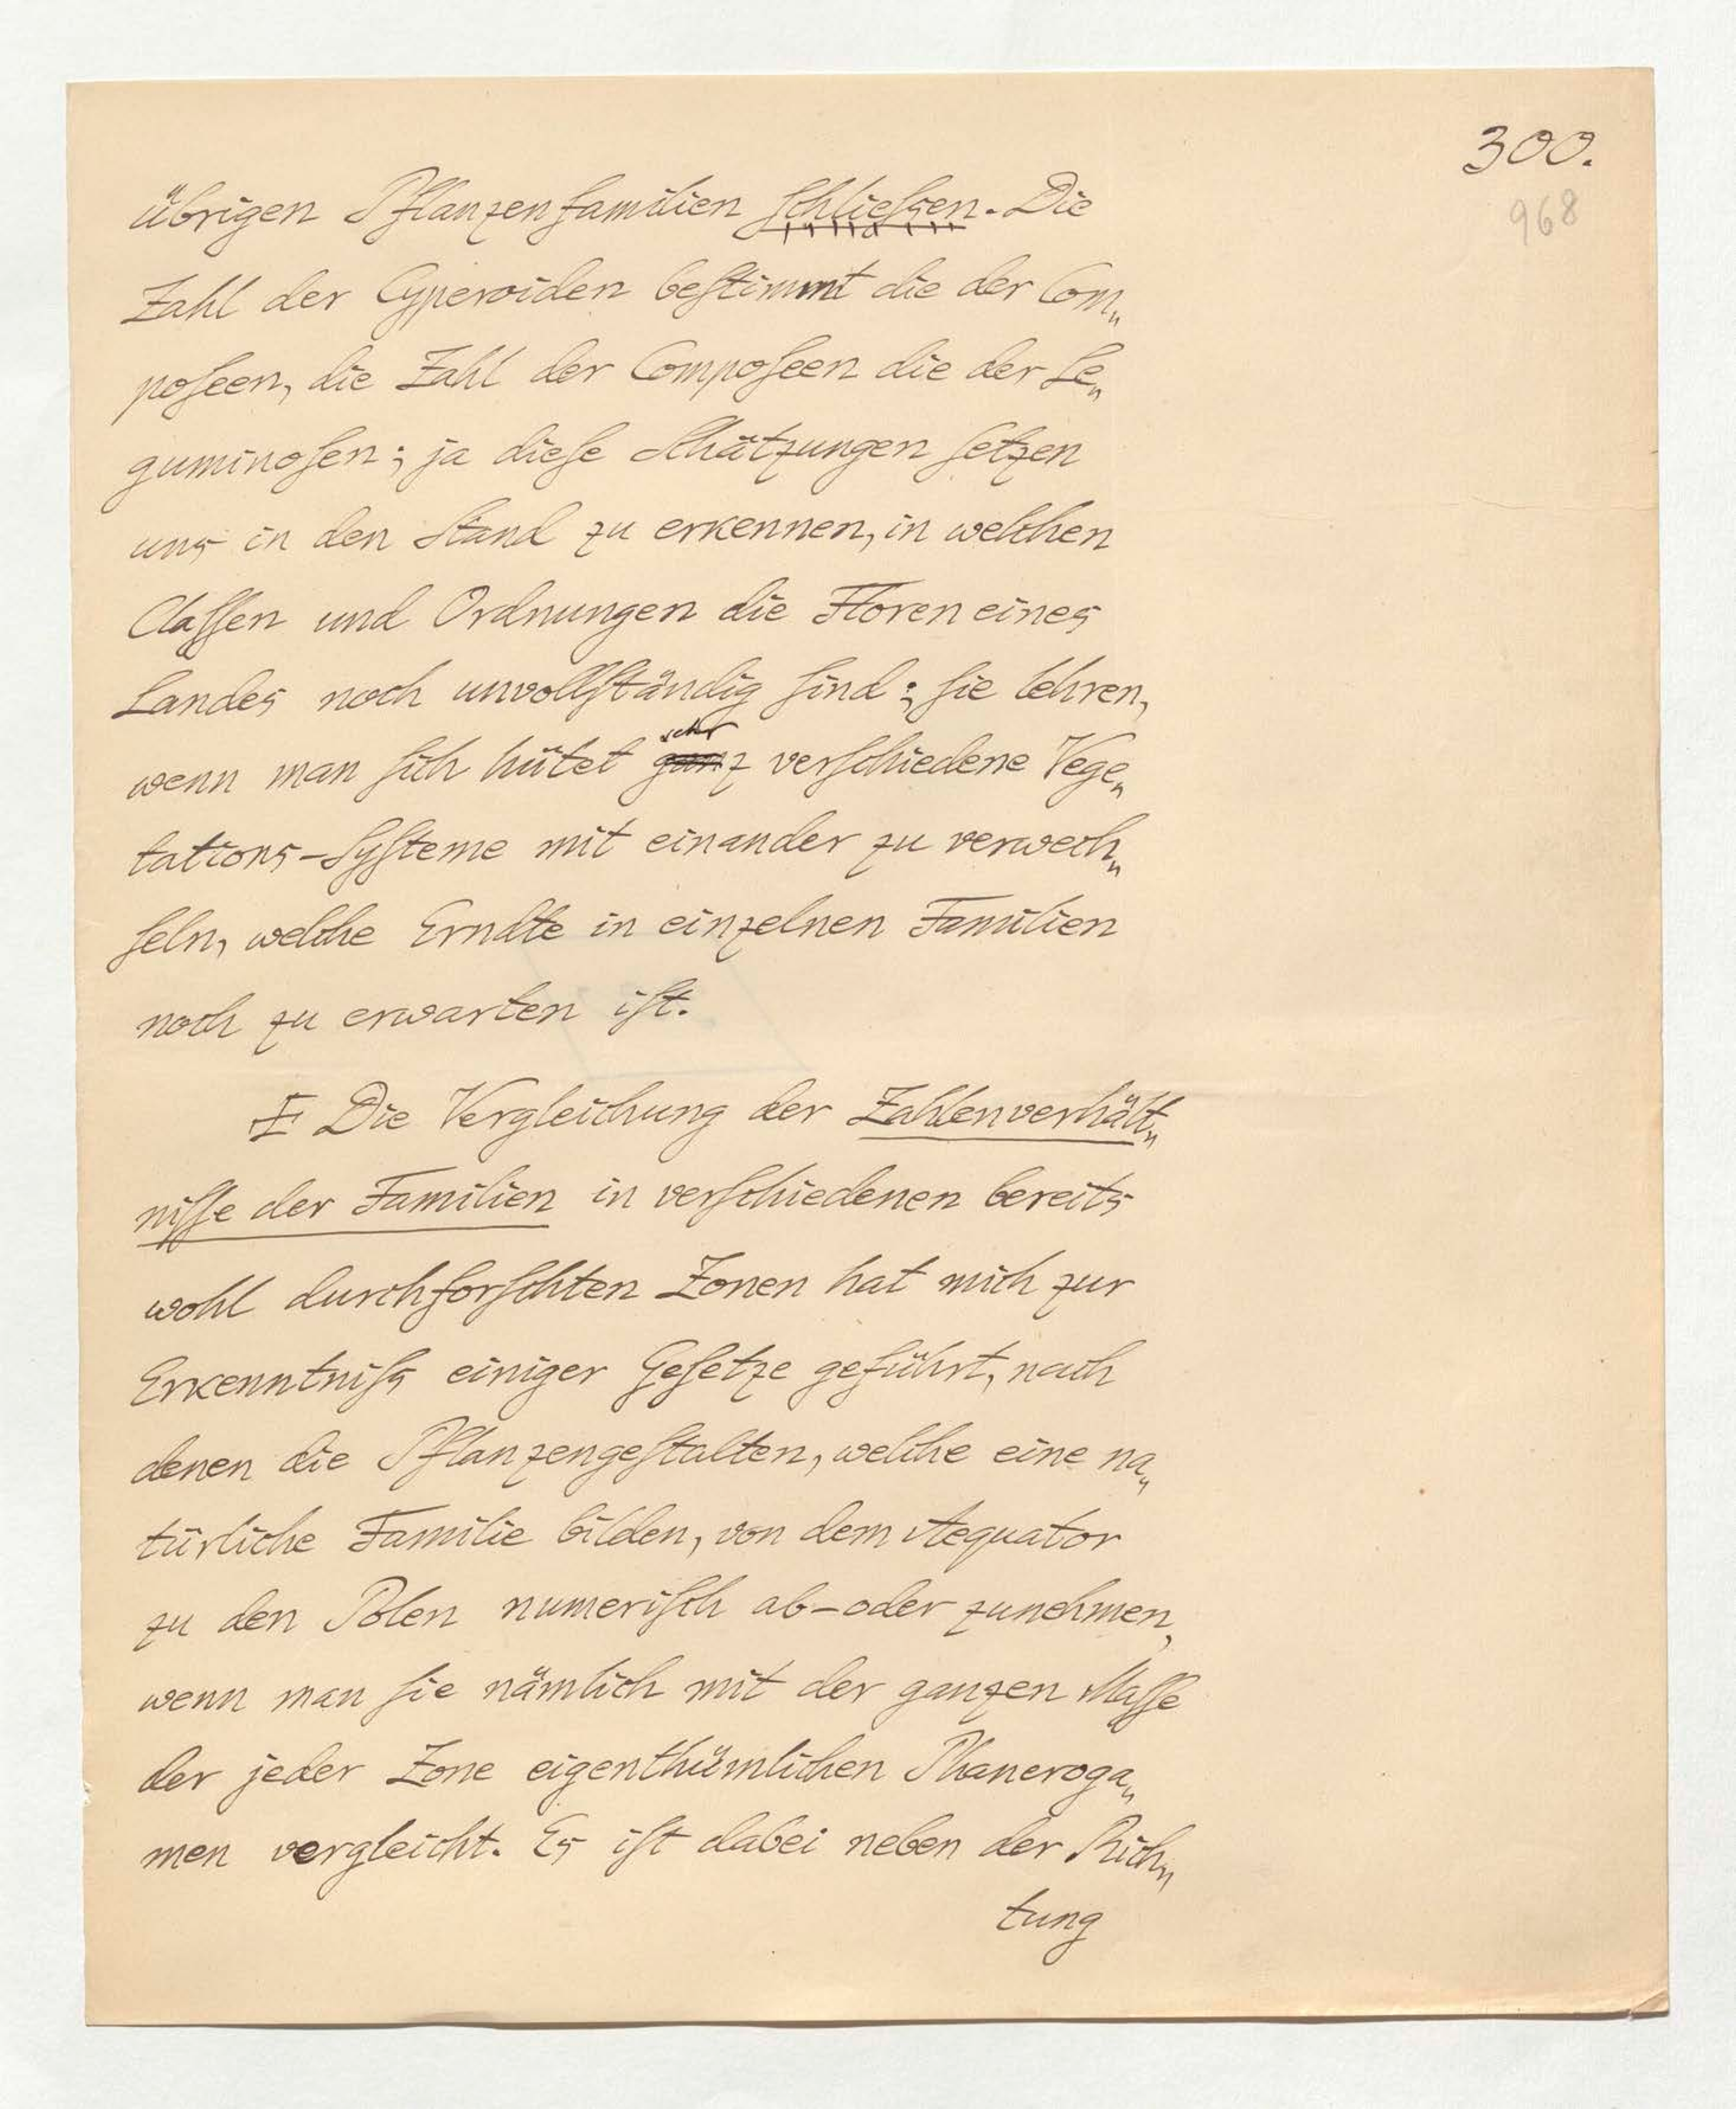 300.
968
übrigen Pflanzenfamilien schließen. Die
Zahl der Cyperoiden bestimmt die der Com„
poseen, die Zahl der Composeen die der Le„
guminosen; ja diese Schätzungen setzen
uns in den Stand zu erkennen, in welchen
Classen und Ordnungen die Floren eines
Landes noch unvollständig sind; sie lehren,
sehr
wenn man sich hütet ganz verschiedene Vege„
tations-Systeme mit einander zu verwech„
seln, welche Erndte in einzelnen Familien
noch zu erwarten ist.
Die Vergleichung der Zahlenverhält„
nisse der Familien in verschiedenen bereits
wohl durchforschten Zonen hat mich zur
Erkenntniß einiger Gesetze geführt, nach
denen die Pflanzengestalten, welche eine na„
türliche Familie bilden, von dem Aequator
zu den Polen numerisch ab-oder zunehmen,
wenn man sie nämlich mit der ganzen Masse
der jeder Zone eigenthümlichen Phaneroga„
men vergleicht. Es ist dabei neben der Rich„
tung